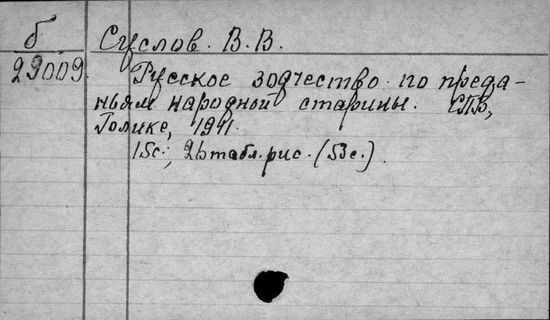 б Суслов. В. В.
29009. Русское зодчество по преда-
ньям народной старины. СПБ,
Голике, 1911.
15с., 26 табл. рис. (53с.)